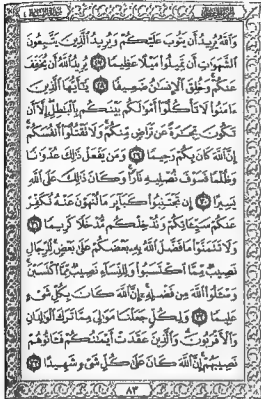 وَٱللَّهُ يُرِيدُ أَن يَتُوبَ عَلَيْكُمْ وَيُرِيدُ ٱلَّذِينَ يَتَّبِعُونَ
ٱلشَّهَوَٰتِ أَن تَمِيلُوا۟ مَيْلًا عَظِيمًا ٢٧ يُرِيدُ ٱللَّهُ أَن يُخَفِّفَ
عَنكُمْ وَخُلِقَ ٱلْإِنسَٰنُ ضَعِيفًا ٢٨ يَٰٓأَيُّهَا ٱلَّذِينَ
ءَامَنُوا۟ لَا تَأْكُلُوٓا۟ أَمْوَٰلَكُم بَيْنَكُم بِٱلْبَٰطِلِ إِلَّآ أَن
تَكُونَ تِجَٰرَةً عَن تَرَاضٍ مِّنكُمْ وَلَا تَقْتُلُوٓا۟ أَنفُسَكُمْ
إِنَّ ٱللَّهَ كَانَ بِكُمْ رَحِيمًا ٢٩ وَمَن يَفْعَلْ ذَٰلِكَ عُدْوَٰنًا
وَظُلْمًا فَسَوْفَ نُصْلِيهِ نَارًا وَكَانَ ذَٰلِكَ عَلَى ٱللَّهِ
يَسِيرًا ٣٠ إِن تَجْتَنِبُوا۟ كَبَآئِرَ مَا تُنْهَوْنَ عَنْهُ نُكَفِّرْ
عَنكُمْ سَيِّـَٔاتِكُمْ وَنُدْخِلْكُم مُّدْخَلًا كَرِيمًا ٣١
وَلَا تَتَمَنَّوْا۟ مَا فَضَّلَ ٱللَّهُ بِهِۦ بَعْضَكُمْ عَلَىٰ بَعْضٍ لِّلرِّجَالِ
نَصِيبٌ مِّمَّا ٱكْتَسَبُوا۟ وَلِلنِّسَآءِ نَصِيبٌ مِّمَّا ٱكْتَسَبْنَ
وَسْـَٔلُوا۟ ٱللَّهَ مِن فَضْلِهِۦٓ إِنَّ ٱللَّهَ كَانَ بِكُلِّ شَىْءٍ
عَلِيمًا ٣٢ وَلِكُلٍّ جَعَلْنَا مَوَٰلِىَ مِمَّا تَرَكَ ٱلْوَٰلِدَانِ
وَٱلْأَقْرَبُونَ وَٱلَّذِينَ عَقَدَتْ أَيْمَٰنُكُمْ فَـَٔاتُوهُمْ
نَصِيبَهُمْ إِنَّ ٱللَّهَ كَانَ عَلَىٰ كُلِّ شَىْءٍ شَهِيدًا ٣٣
٨٣